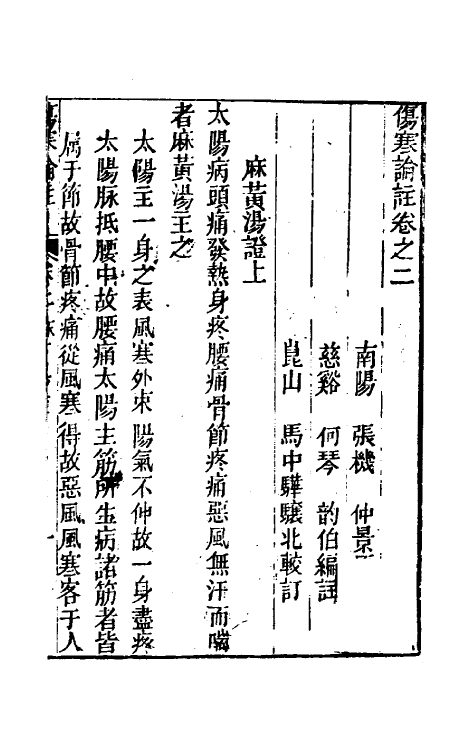 傷寒論註卷之二
南陽　張機　仲景
慈谿　何琴　韵伯編註
崑山　馬中驊驤北較訂
麻黃湯證上
太陽病頭痛發熱身疼腰痛骨節疼痛惡風無汗而喘
者麻黃湯主之
太陽主一身之表風寒外束陽氣不伸故一身盡疼
太陽脉抵腰中故腰痛太陽主筋所生病諸筋者皆
屬于節故骨節疼痛從風寒得故惡風風寒客于人